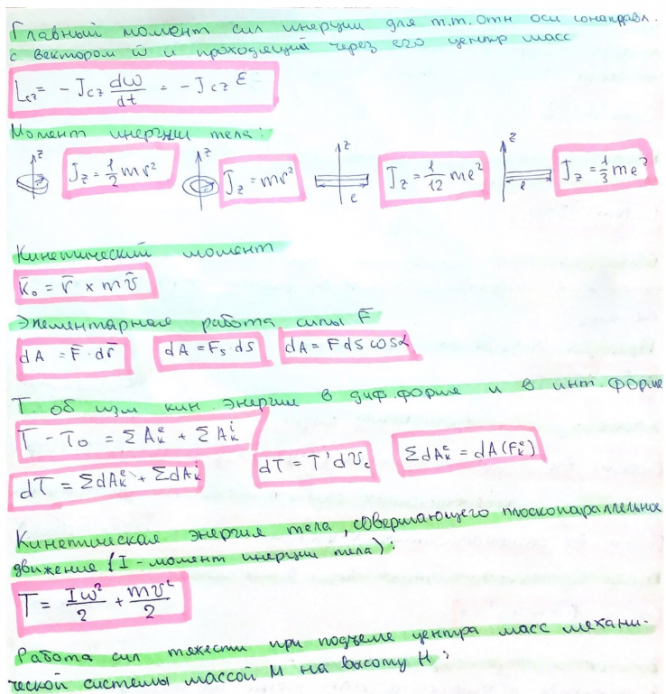 Главный момент сил инерции для т.т. отн оси сонаправл.
с вектором ω̄ и проходящий через его центр масс
Lcz = - Jcz dω/dt = - Jcz ε
Момент инерции тела:
z Jz = 1/2 mr² z Jz = mr² z l Jz = 1/12 ml² z l Jz = 1/3 ml²
Кинетический момент
K̄o = r̄ × m v̄
Элементарная работа силы F̄
dA = F̄ · dr̄ dA = Fs ds dA = F ds cosα
Т. об изм кин. энергии в диф. форме и в инт. форме
T - T₀ = ΣAₖᵉ + ΣAₖⁱ
dT = ΣdAₖᵉ + ΣdAₖⁱ dT = T'dVc ΣdAₖᵉ = dA(Fₖᵉ)
Кинетическая энергия тела, совершающего плоскопараллельное
движение (I - момент инерции тела):
T = Iω²/2 + mv²/2
Работа сил тяжести при подъеме центра масс механи-
ческой системы массой M на высоту H: